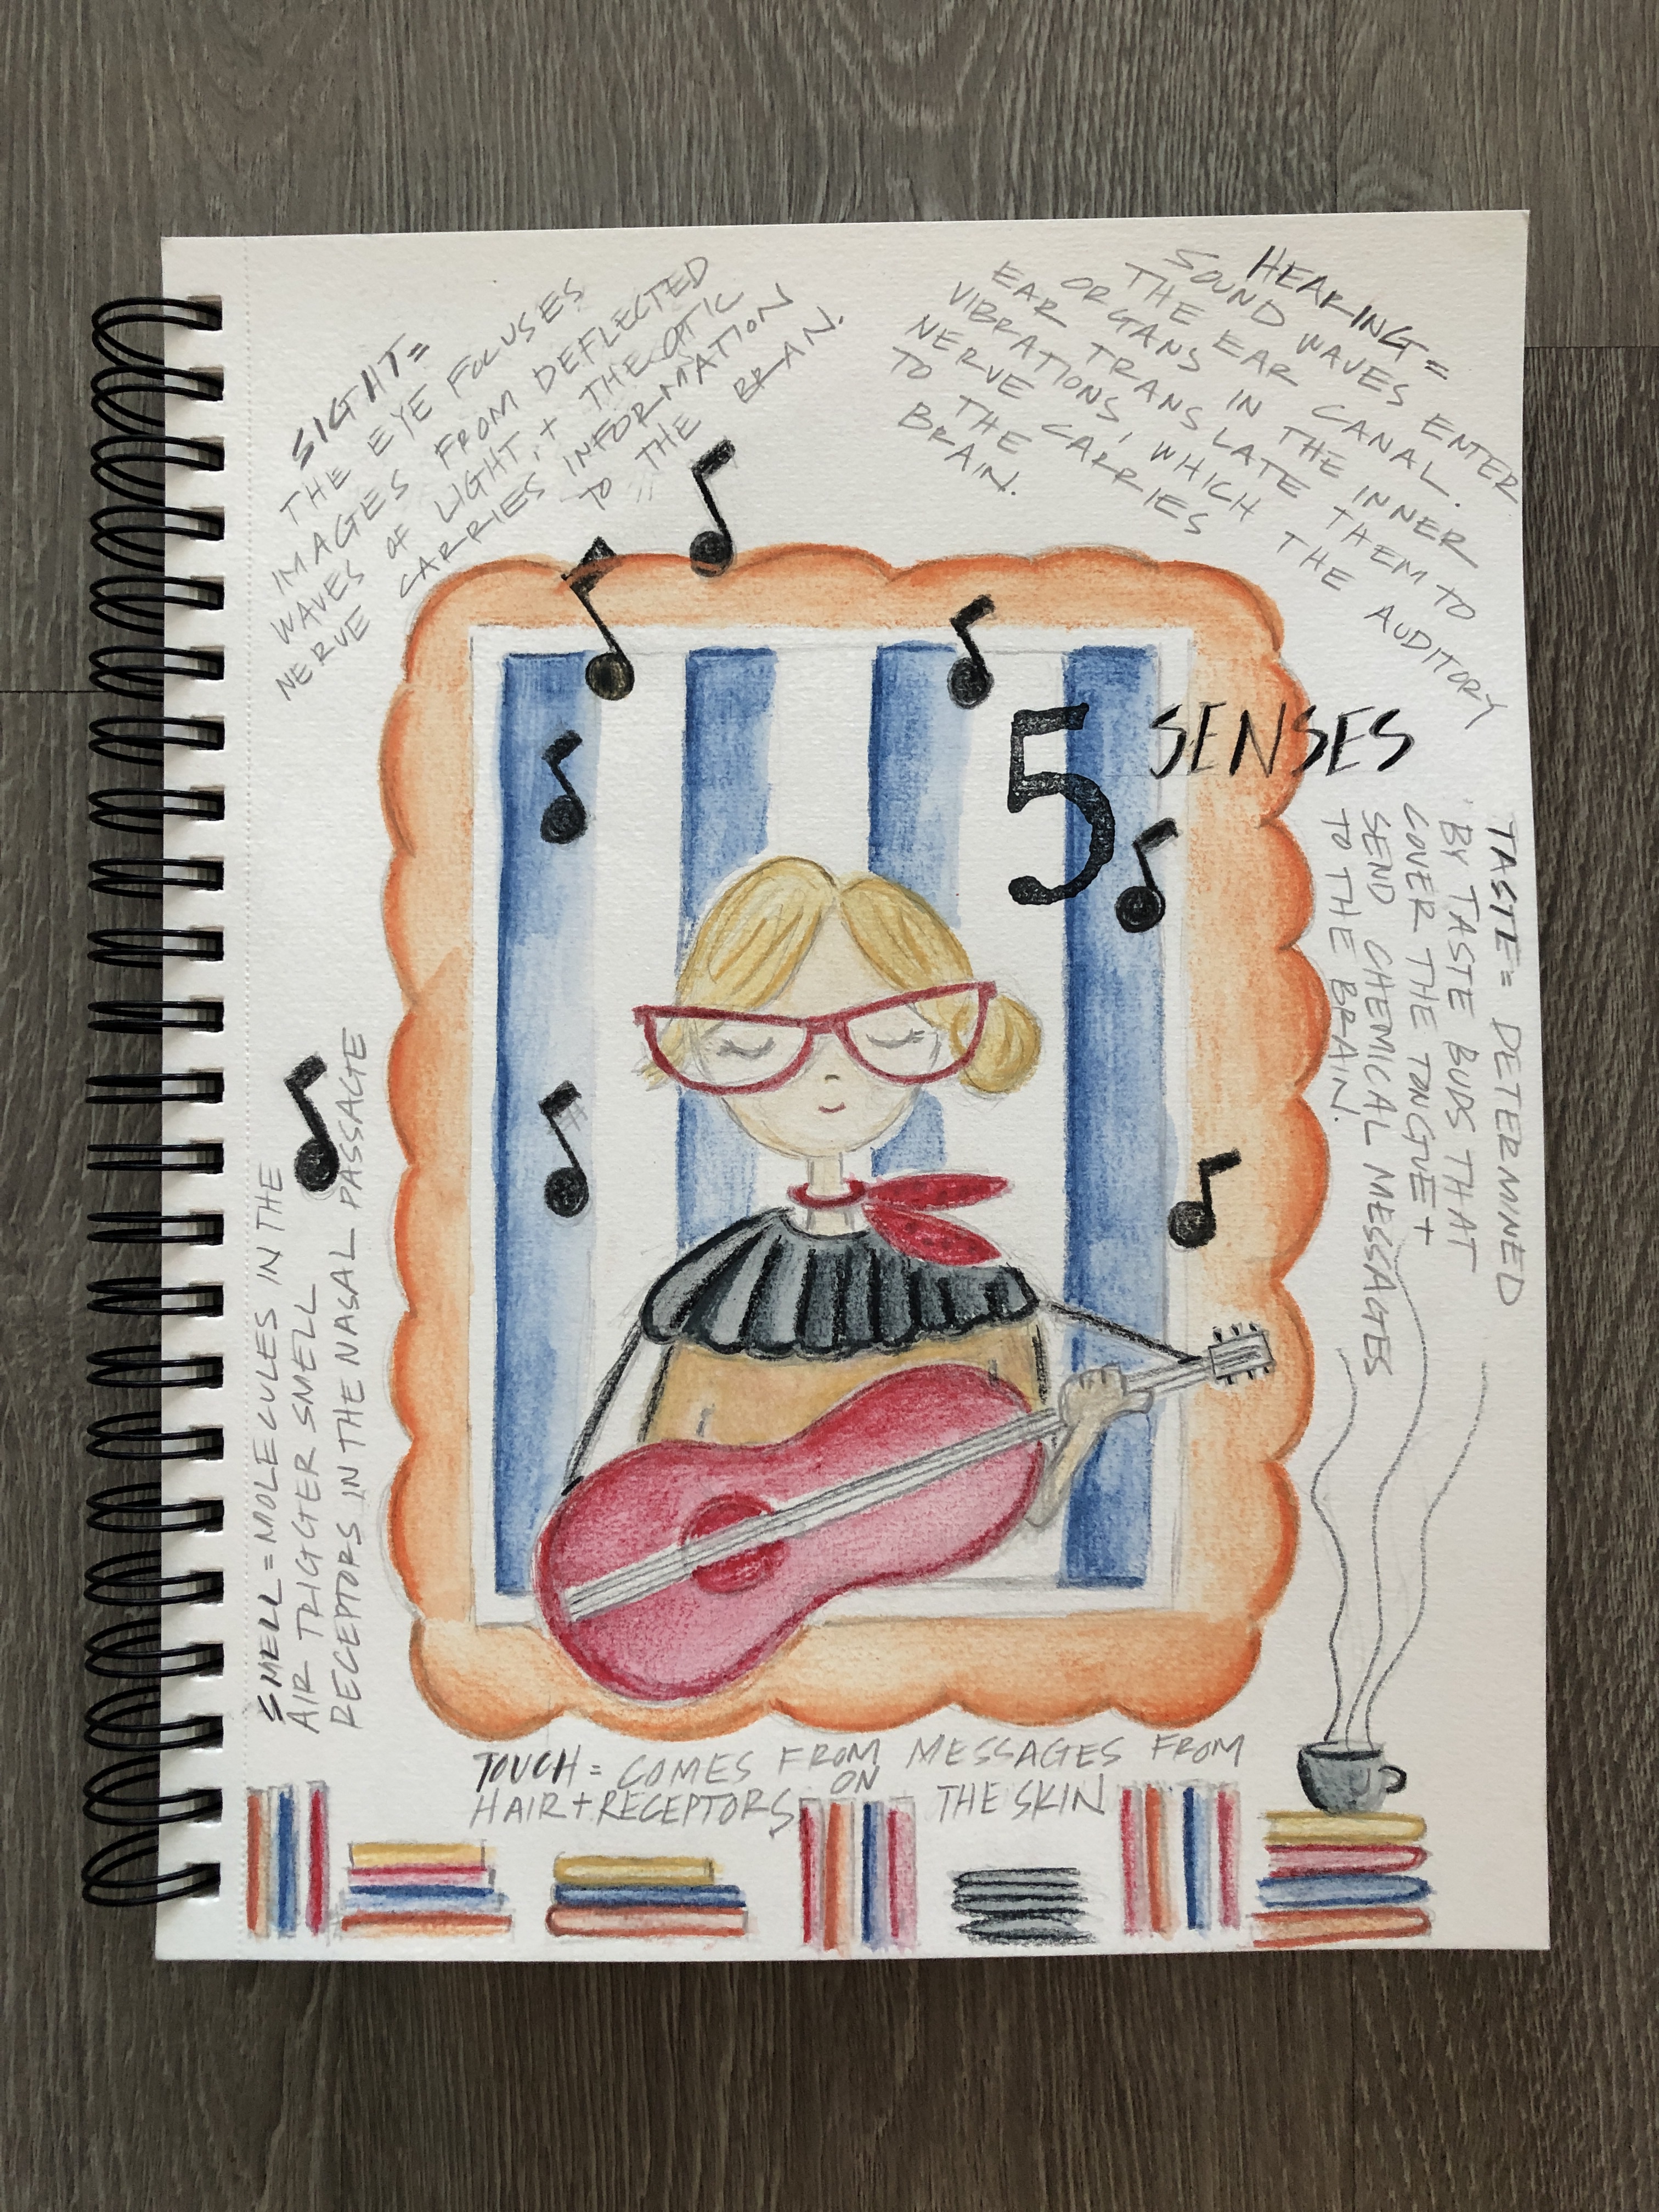 SIGHT=
THE EYE FOCUSES
IMAGES FROM DEFLECTED
WAVES OF LIGHT, + THE OTIC
NERVE CARRIES INFORMATION
TO THE BRAN.
HEARING=
SOUND WAVES ENTER
THE EAR CANAL.
ORGANS IN THE INNER
EAR TRANSLATE THEM TO
VIBRATIONS, WHICH THE AUDITORY
NERVE CARRIES
TO THE
BRAIN.
5 SENSES
TASTE= DETERMINED
BY TASTE BUDS THAT
COVER THE TONGUE +
SEND CHEMICAL MESSAGES
TO THE BRAIN.
SMELL = MOLECULES IN THE
AIR TRIGGER SMELL
RECEPTORS IN THE NASAL PASSAGE
TOUCH = COMES FROM MESSAGES FROM
HAIR + RECEPTORS ON THE SKIN